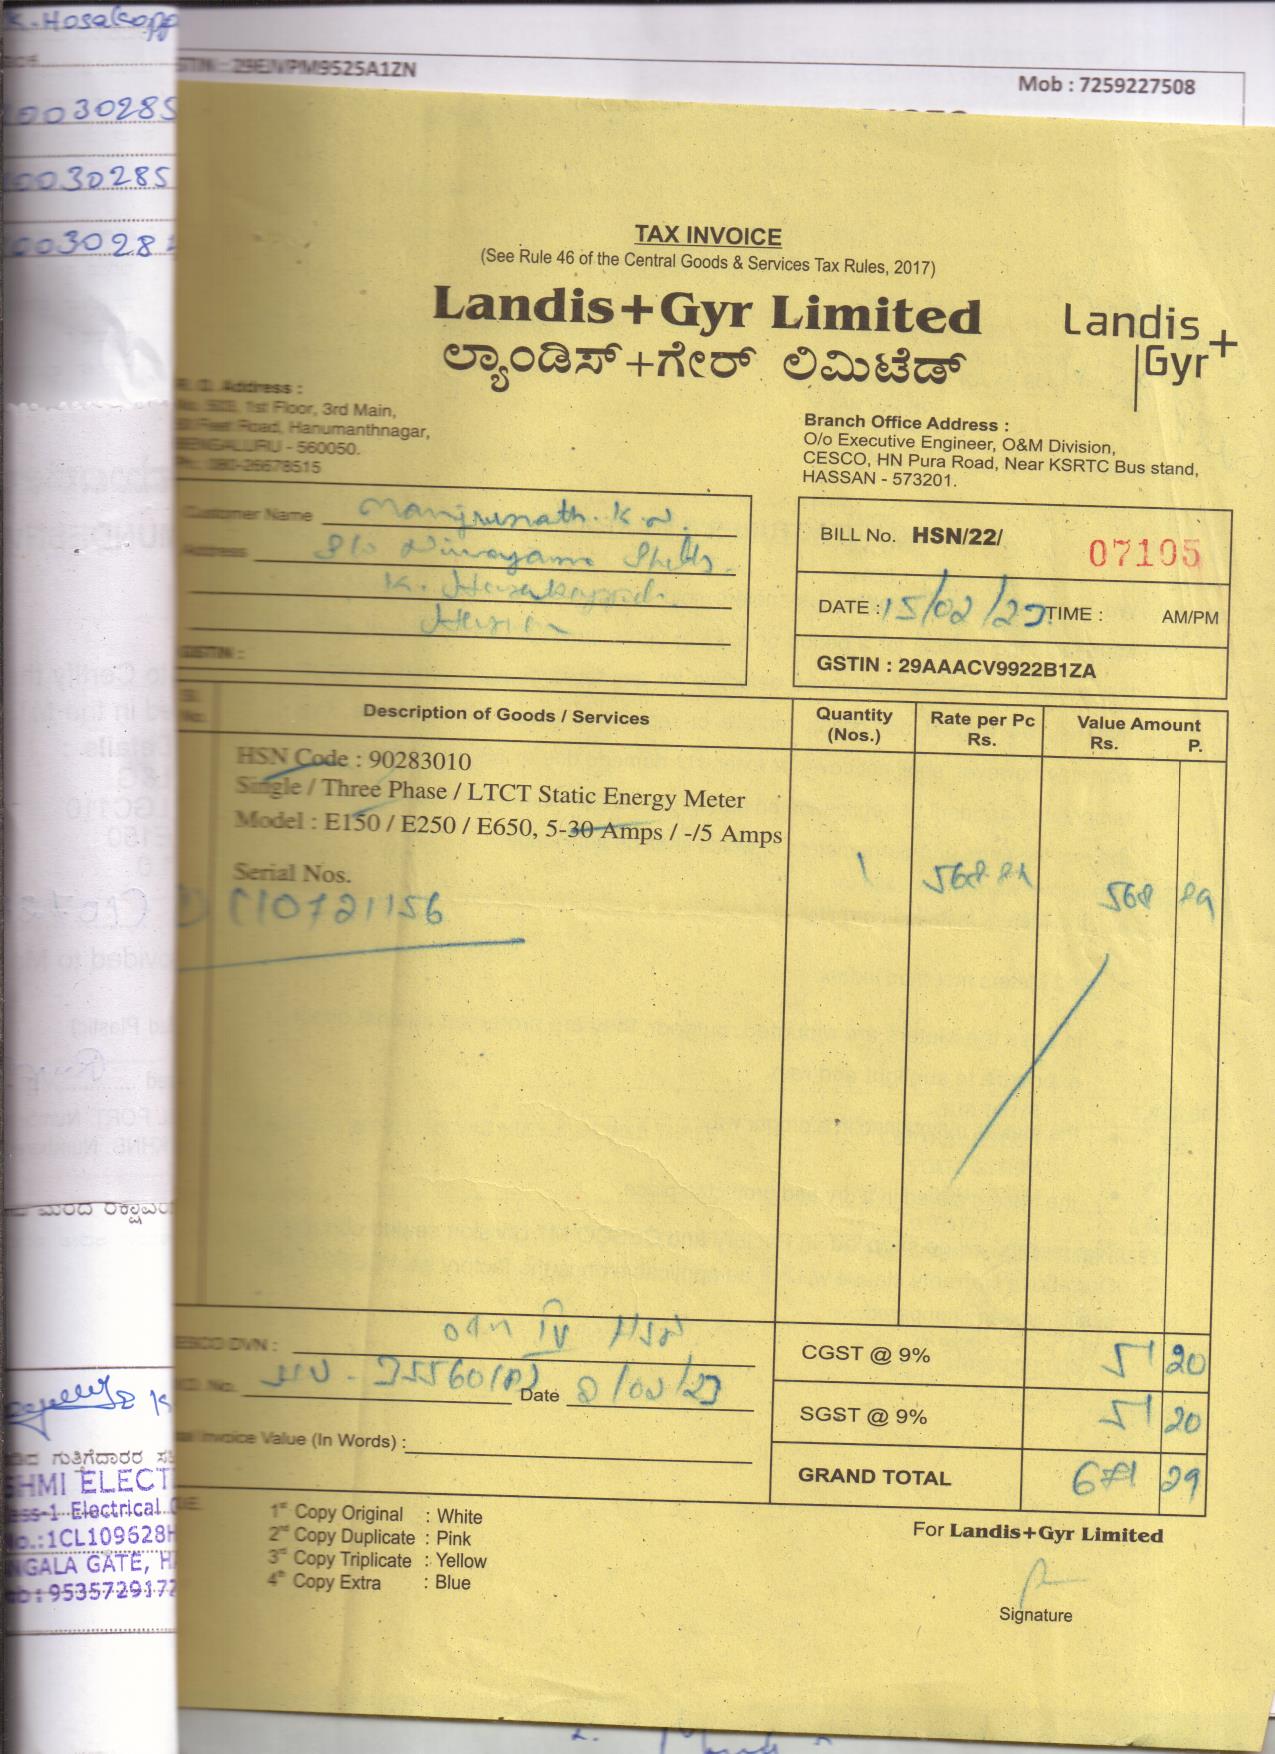 K. Hosakopp
GSTIN : 29EJVPM9525A1ZN
Mob : 7259227508
0030285
0030285
003028
TAX INVOICE
(See Rule 46 of the Central Goods & Services Tax Rules, 2017)
Landis+Gyr Limited
ಲ್ಯಾಂಡಿಸ್+ಗೇರ್ ಲಿಮಿಟೆಡ್
Landis+
Gyr
R. O. Address :
1st Floor, 3rd Main,
Feet Road, Hanumanthnagar,
BENGALURU - 560050.
Ph : 080-26678515
Branch Office Address :
O/o Executive Engineer, O&M Division,
CESCO, HN Pura Road, Near KSRTC Bus stand,
HASSAN - 573201.
Customer Name Manjunath. K.N.
Address S/o
K.
GSTIN :
BILL No. HSN/22/ 07105
DATE : 15/02/23 TIME : AM/PM
GSTIN : 29AAACV9922B1ZA
Sl. No. Description of Goods / Services Quantity (Nos.) Rate per Pc Rs. Value Amount Rs. P.
HSN Code : 90283010
Single / Three Phase / LTCT Static Energy Meter
Model : E150 / E250 / E650, 5-30 Amps / -/5 Amps
Serial Nos.
1 C10721156 1 568 568
CESCO DVN : IV
No. Date
Invoice Value (In Words) :
CGST @ 9% 51 20
SGST @ 9% 51 20
GRAND TOTAL 671 29
1st Copy Original : White
2nd Copy Duplicate : Pink
3rd Copy Triplicate : Yellow
4th Copy Extra : Blue
For Landis+Gyr Limited
Signature
ಮರದ
ಗುತ್ತಿಗೆದಾರರ
SHMI ELECT
ass-1 Electrical
No.:1CL109628H
NGALA GATE, H
: 953572917